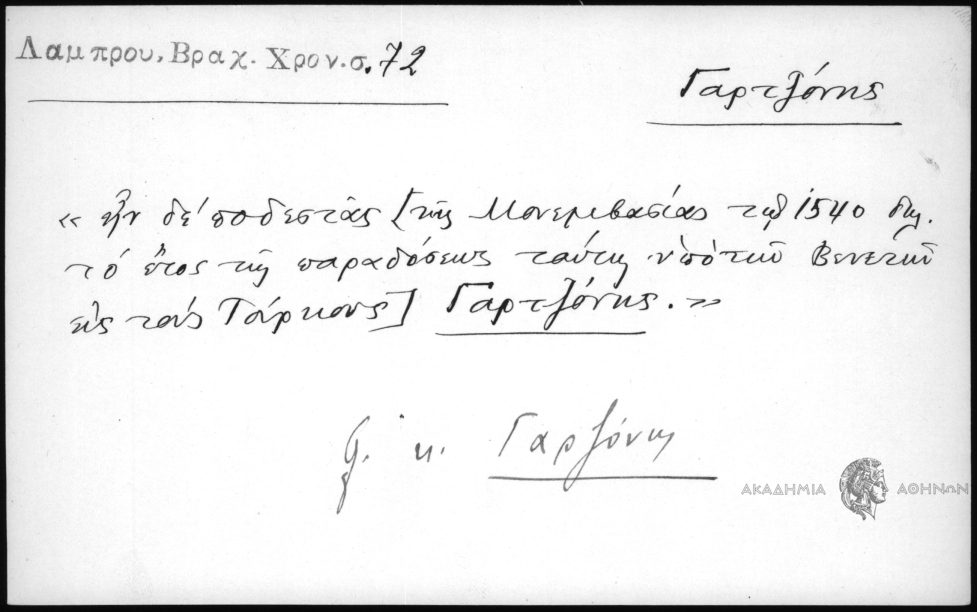 Λαμπρου, Βραχ. Χρον. σ. 72
Γαρτζόνης
« ἦν δὲ ποδεστᾶς [τῆς Μονεμβασίας τῷ 1540 δηλ.
τὸ ἔτος τῆς παραδόσεως ταύτης ὑπὸ τῶν Βενετῶν
εἰς τοὺς Τούρκους] Γαρτζόνης. »
κ. Γαρζόνης
ΑΚΑΔΗΜΙΑ ΑΘΗΝΩΝ